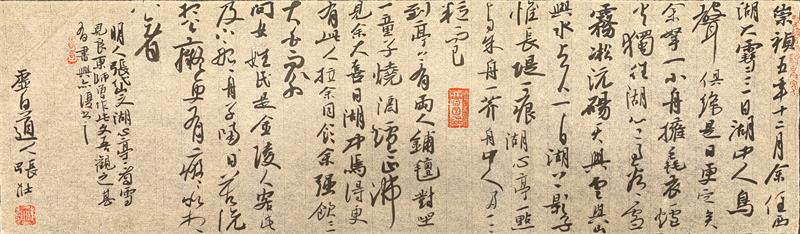 崇禎五年十二月余住西
湖大雪三日湖中人鳥
聲俱絕是日更定矣
余拏一小舟擁毳衣爐
火獨往湖心亭看雪
霧淞沆碭天與雲與山
與水上下一白湖上影子
惟長堤一痕湖心亭一點
與余舟一芥舟中人兩三
粒而已
到亭上有兩人鋪氈對坐
一童子燒酒爐正沸
見余大喜曰湖中焉得更
有此人拉余同飲余強飲三
大白而別
問其姓氏是金陵人客此
及下船舟子喃曰莫說
相公癡更有癡似相
公者
明人張岱文湖心亭看雪
見良東師曾作此文吾觀之甚
有書興亦
道人張